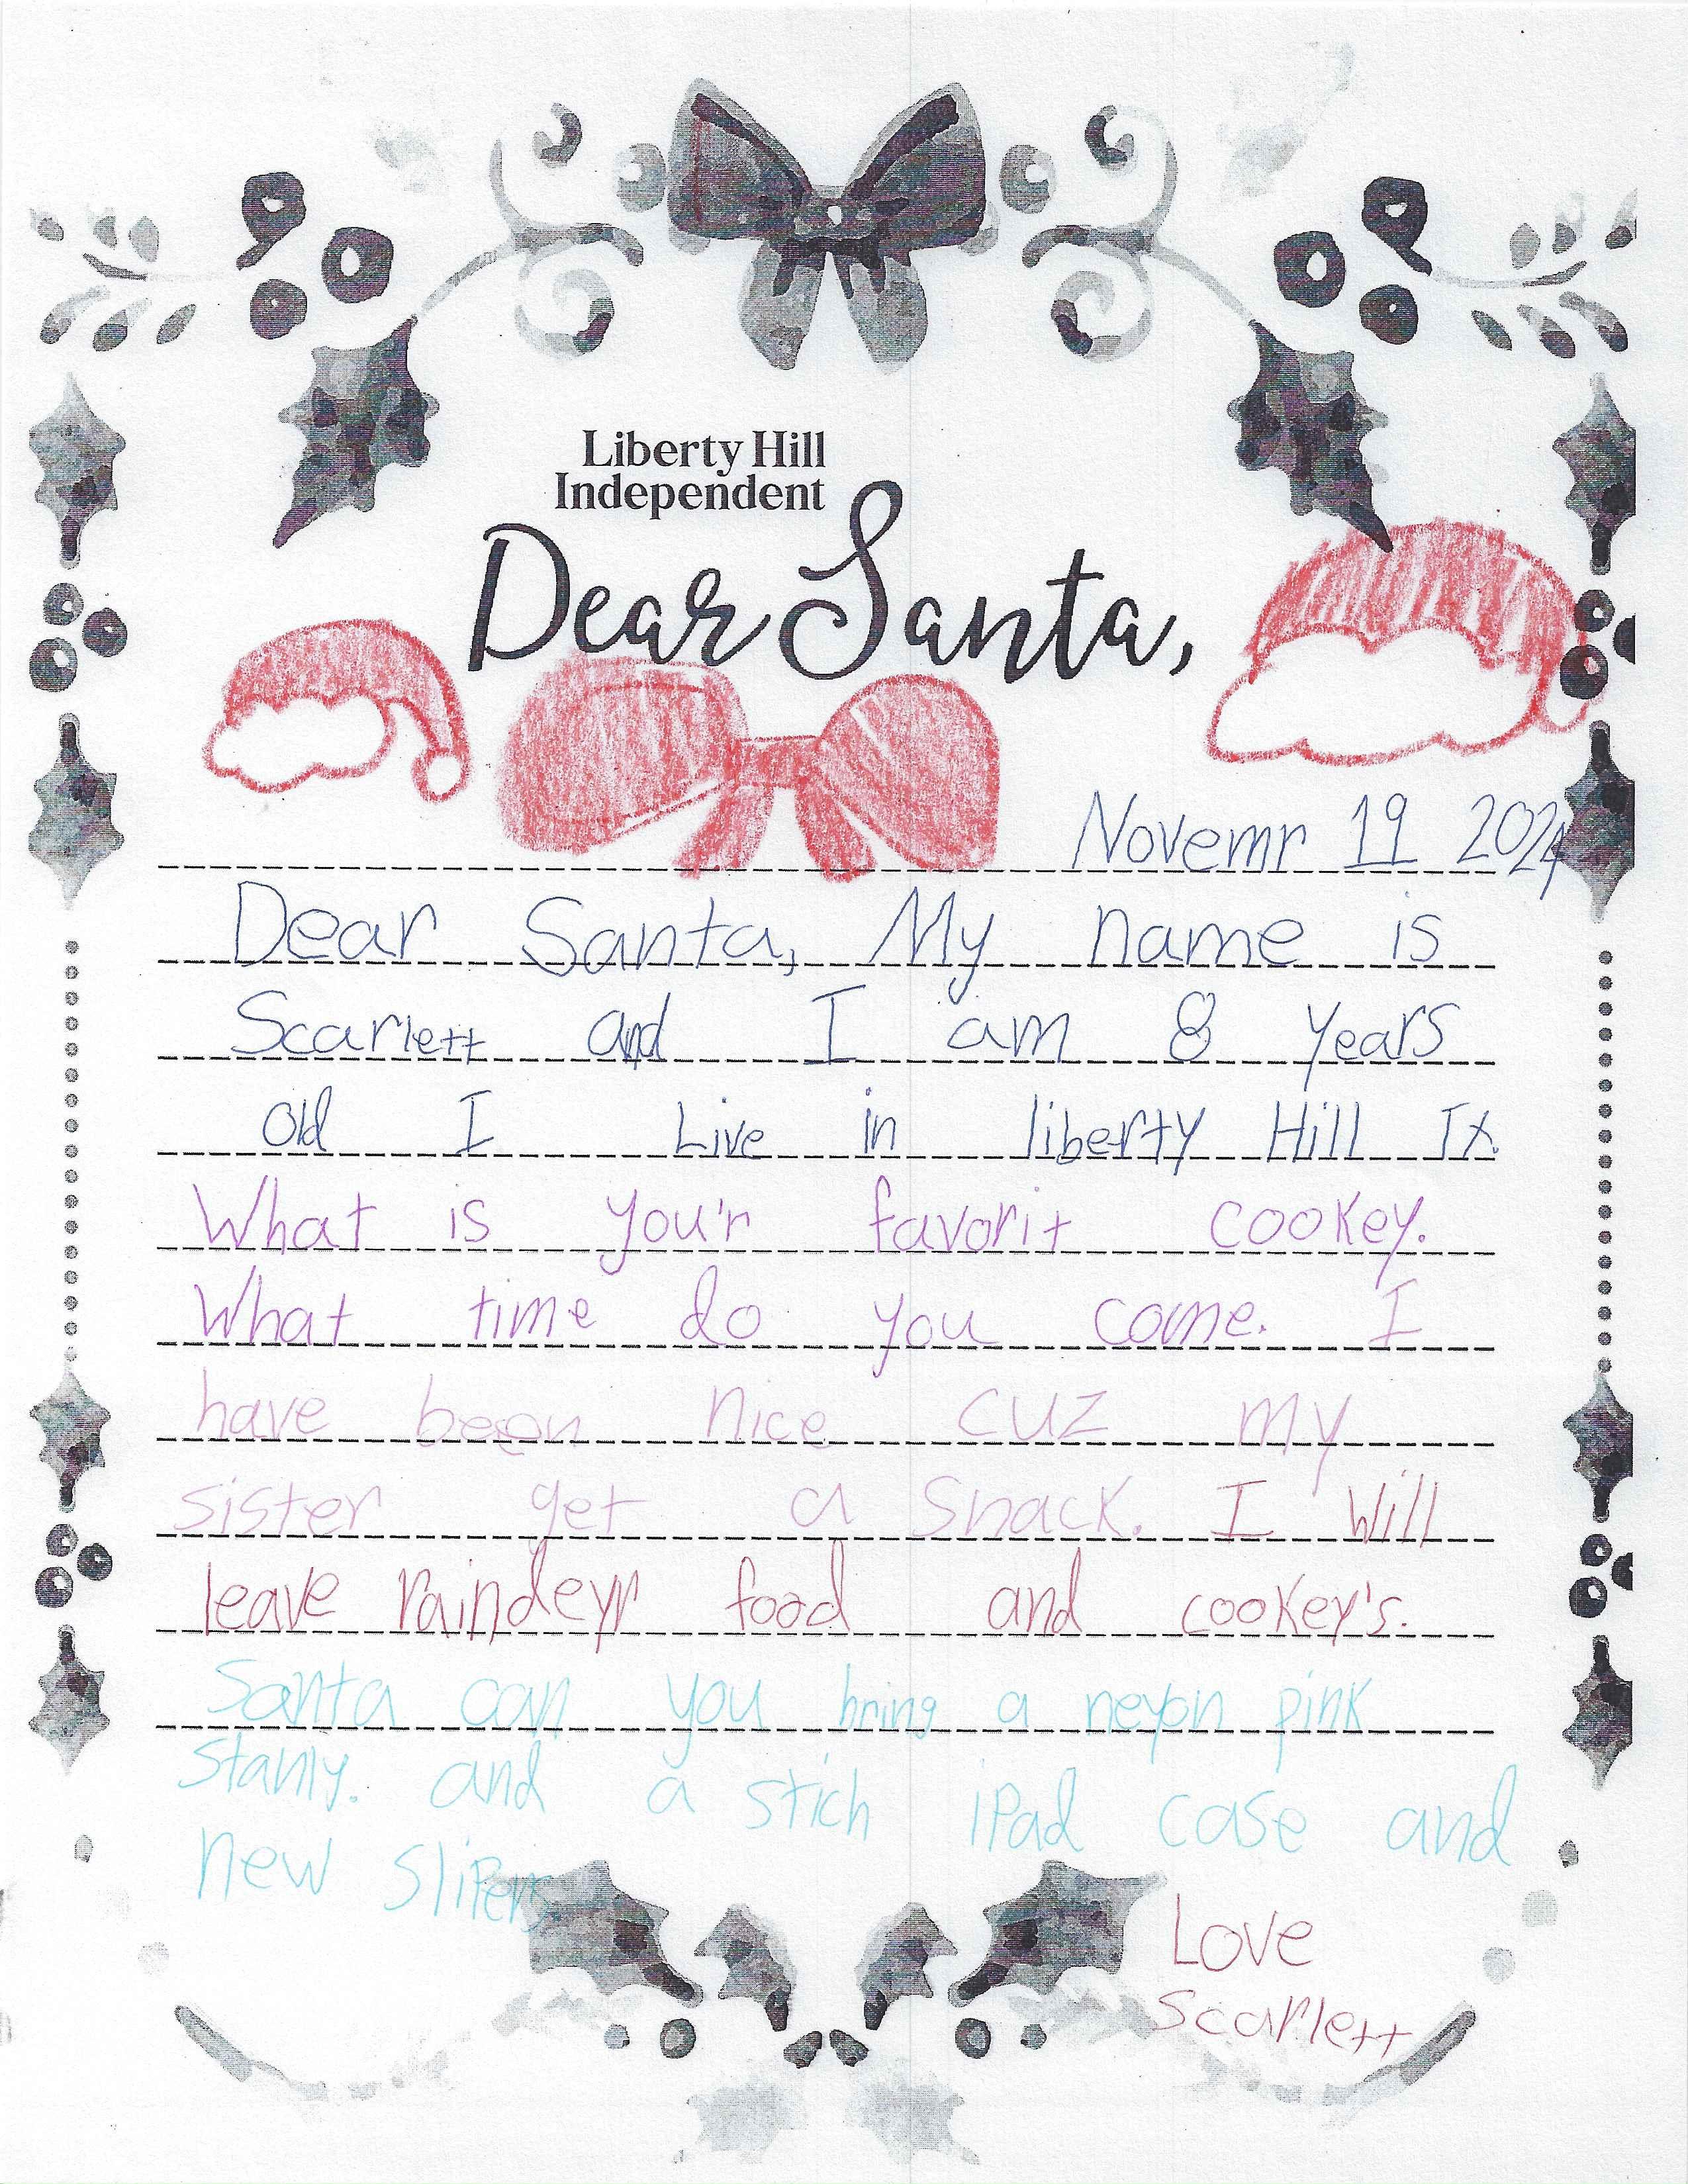 Liberty Hill
Independent
Dear Santa,
Novemr 19 2024
Dear Santa, My name is
Scarlett and I am 8 years
old I Live in liberty Hill Tx.
What is you'r favorit cookey.
What time do you come. I
have been nice cuz my
sister get a snack. I will
leave raindeyr food and cookey's.
Santa can you bring a neyon pink
Stanly. and a stich iPad case and
new slipers.
Love
Scarlett